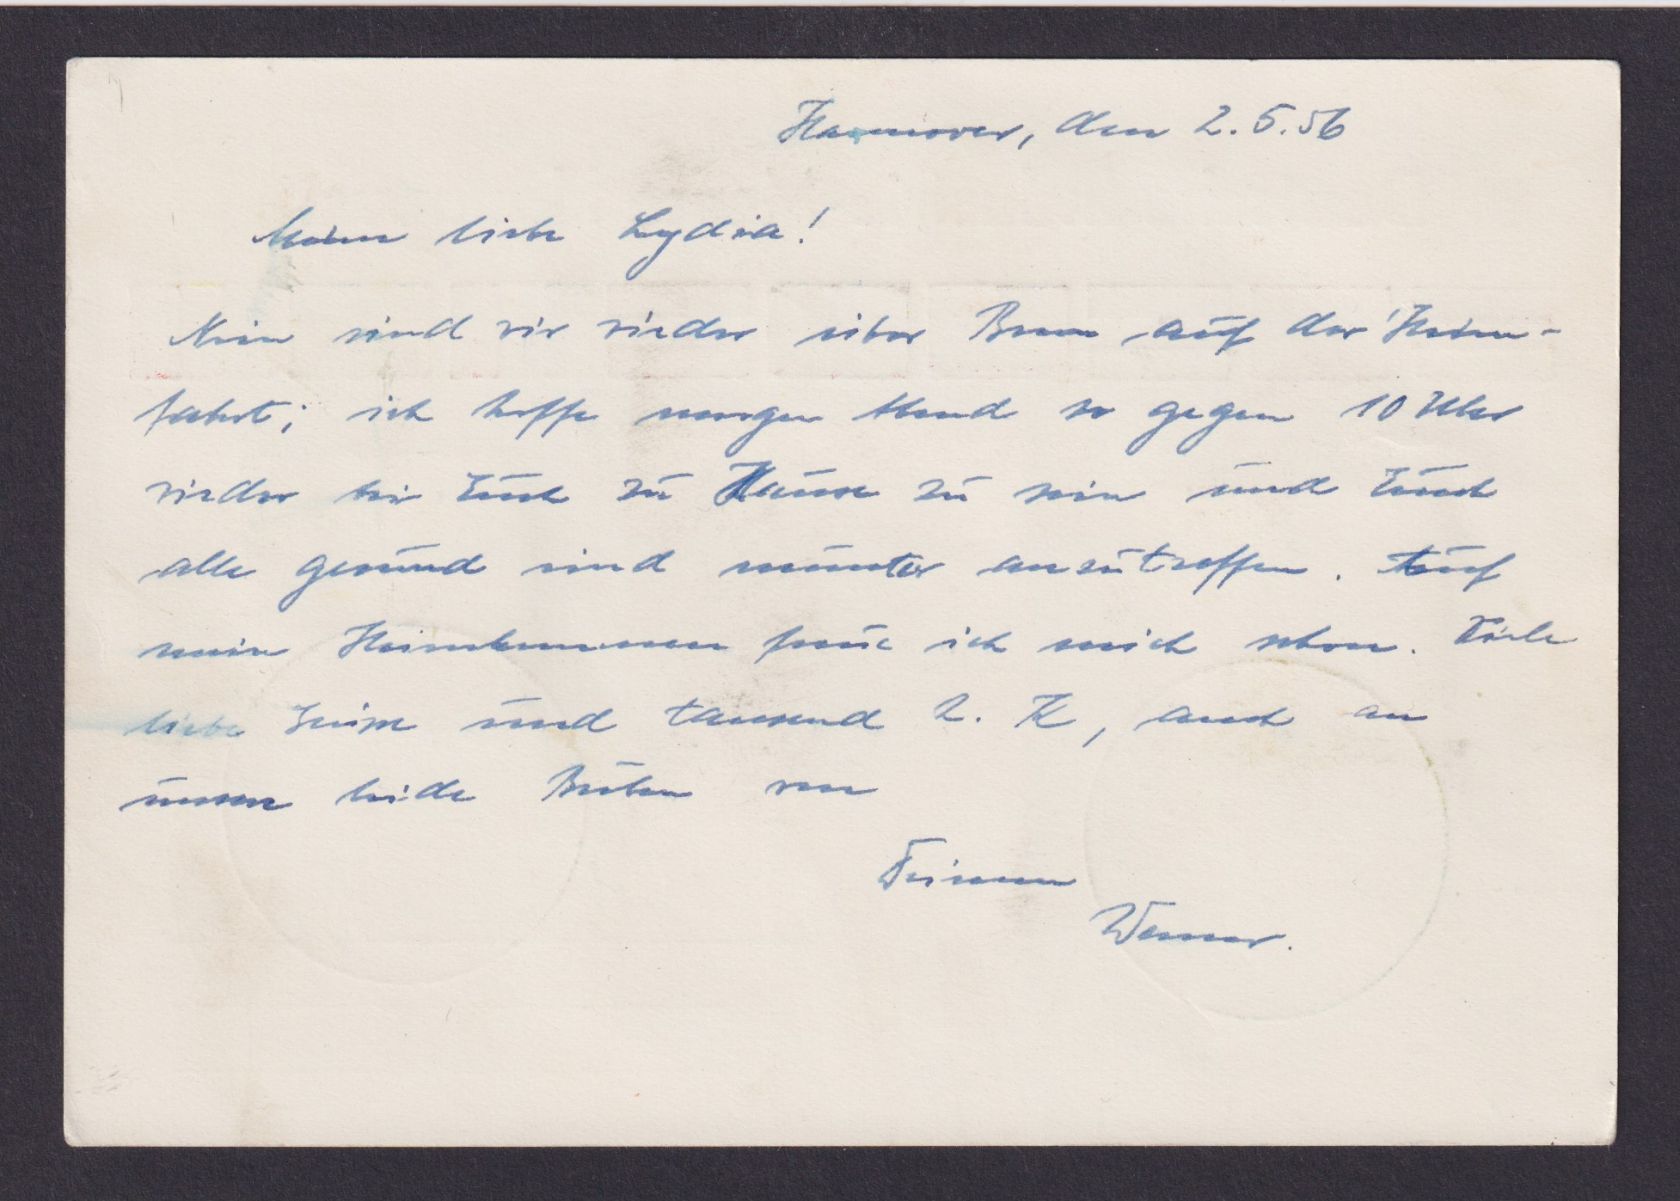 Hannover, den 2.5.56
Meine liebe Lydia!
Nun sind wir wieder über Bonn auf der Heim-
fahrt; ich hoffe morgen Abend so gegen 10 Uhr
wieder bei Euch zu Hause zu sein und Euch
alle gesund und munter anzutreffen. Auf
mein Heimkommen freue ich mich schon. Viele
liebe Grüße und tausend L. K, auch an
unsere beide Buben von
Deinem
Werner.